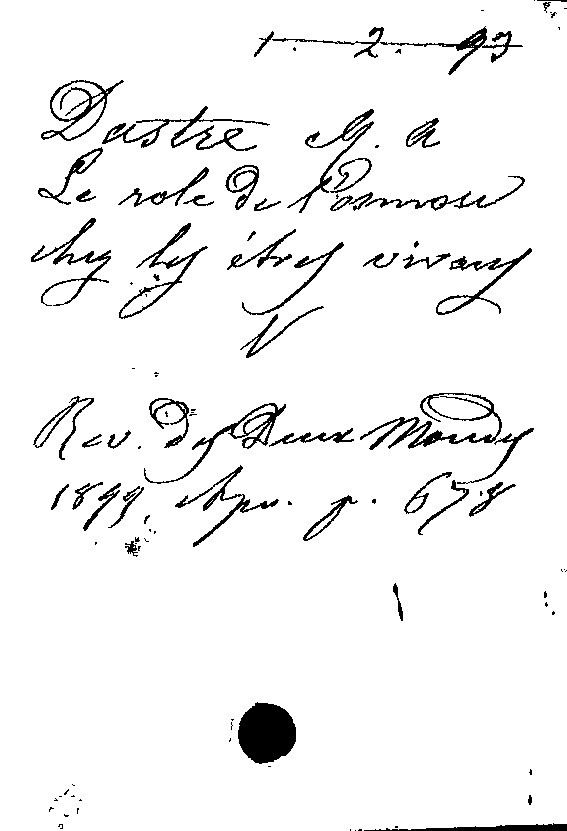 1. 2. 93
Dastre M. A
Le role de l'osmose
chez les êtres vivans
V
Rev. des Deux Mondes
1899 Apr. p. 678